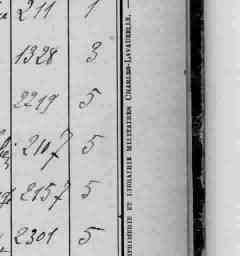 211 1
1328 3
2219 5
2107 5
2157 5
2301 5
IMPRIMERIE ET LIBRAIRIE MILITAIRES CHARLES-LAVAUZELLE.